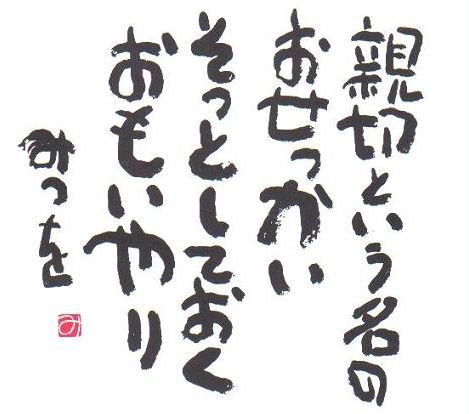 親切という名の
おせっかい
そっとしておく
おもいやり
みつを
み